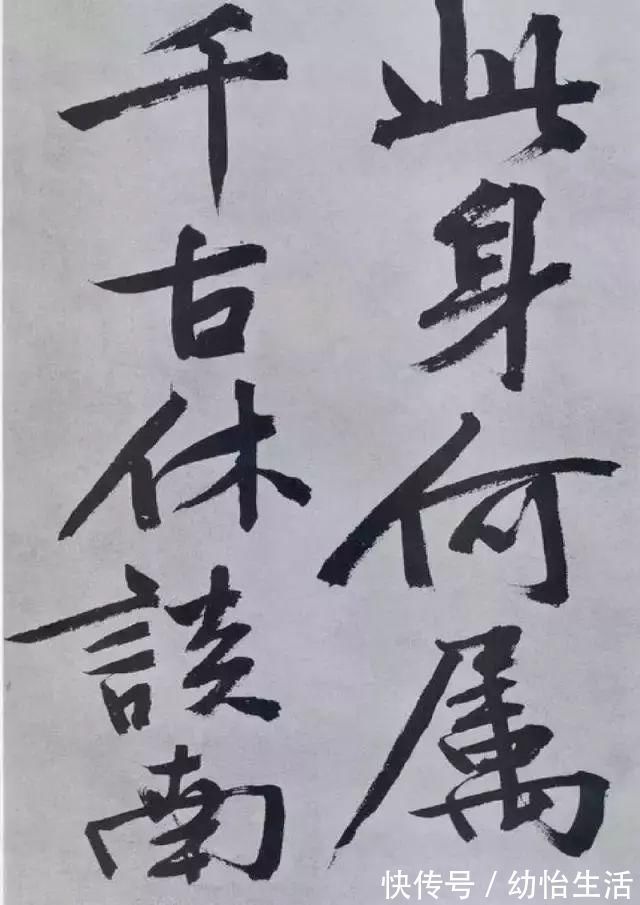 此身何属
千古休談南
快传号/幼怡生活